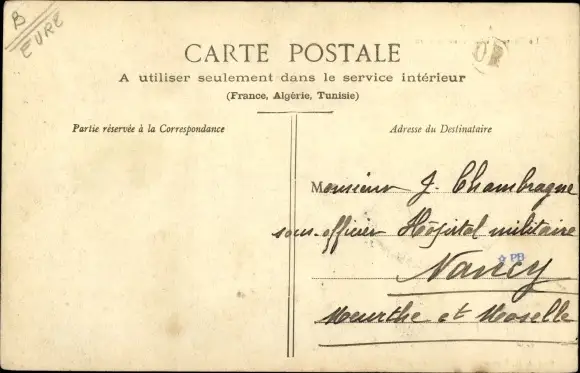 B
EURE
CARTE POSTALE
OR
A utiliser seulement dans le service intérieur
(France, Algérie, Tunisie)
Partie réservée à la Correspondance
Adresse du Destinataire
Monsieur J. Chambragne
sous-officier Hôpital militaire
☆ PB
Nancy
Meurthe et Moselle